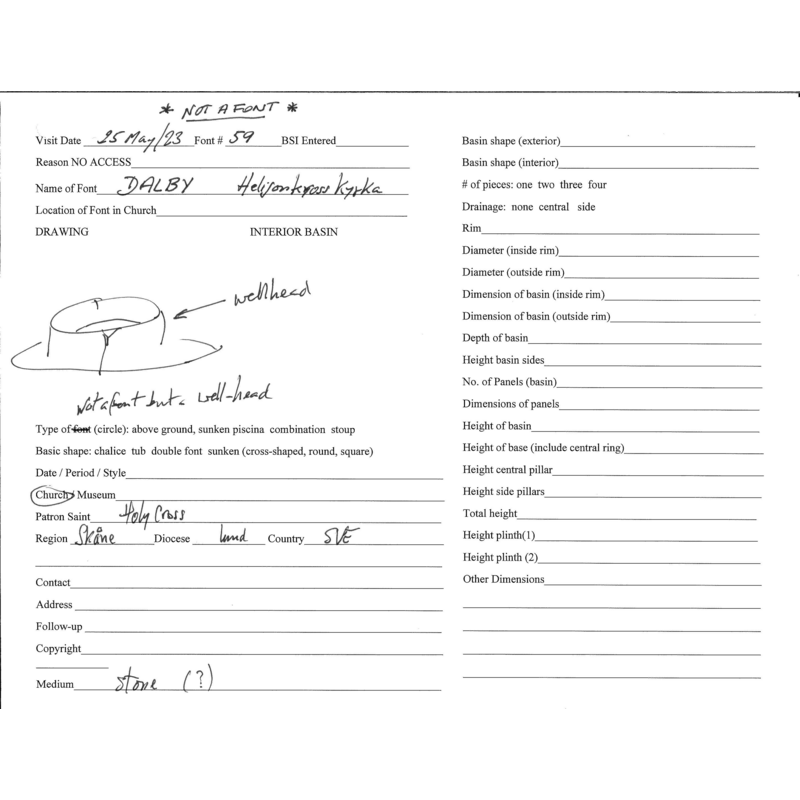 * NOT A FONT *
Visit Date 25 May/23 Font # 59 BSI Entered
Reason NO ACCESS
Name of Font DALBY Heligonkross Kyrka
Location of Font in Church
DRAWING INTERIOR BASIN
wellhead
Not a font but a well-head
Type of font (circle): above ground, sunken piscina combination stoup
Basic shape: chalice tub double font sunken (cross-shaped, round, square)
Date / Period / Style
Church Museum
Patron Saint Holy Cross
Region Skåne Diocese Lund Country SVE
Contact
Address
Follow-up
Copyright
Medium stone (?)
Basin shape (exterior)
Basin shape (interior)
# of pieces: one two three four
Drainage: none central side
Rim
Diameter (inside rim)
Diameter (outside rim)
Dimension of basin (inside rim)
Dimension of basin (outside rim)
Depth of basin
Height basin sides
No. of Panels (basin)
Dimensions of panels
Height of basin
Height of base (include central ring)
Height central pillar
Height side pillars
Total height
Height plinth(1)
Height plinth (2)
Other Dimensions